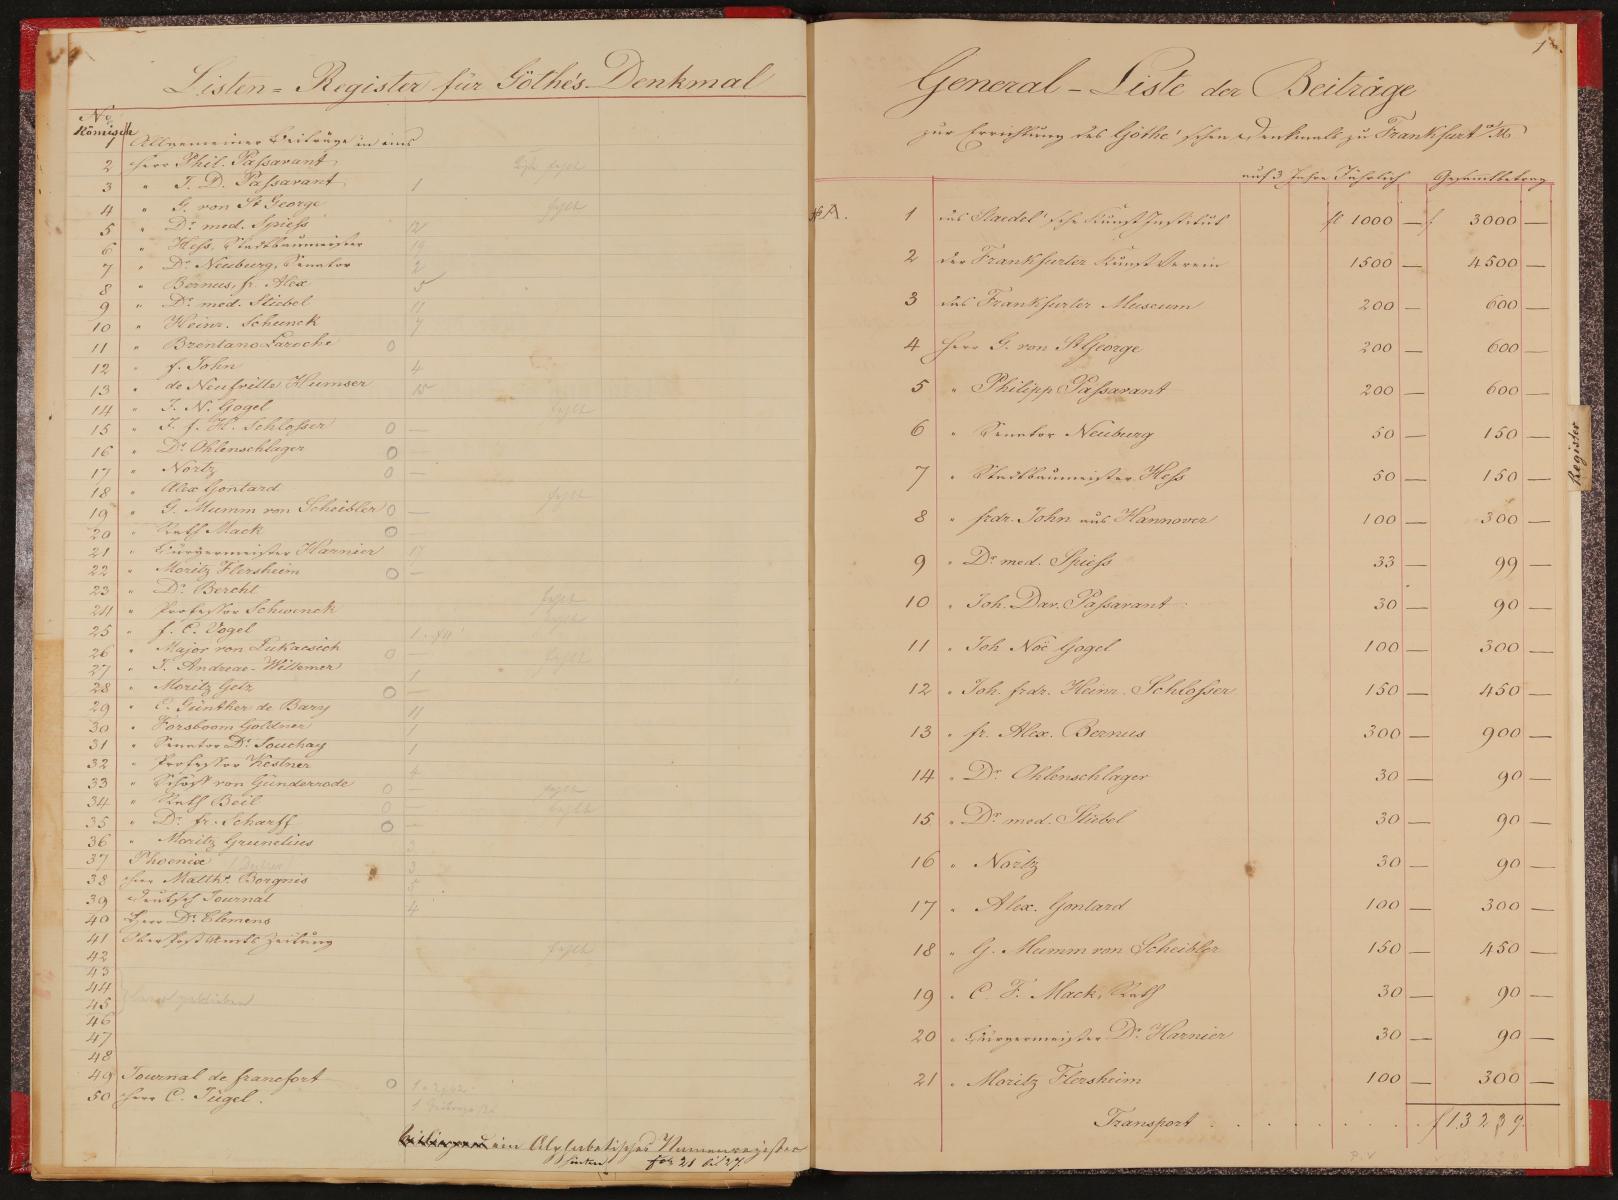 Listen-Register für Göthe's Denkmal
No.
Römisch
1 Allgemeiner Beiträge in eins
2 Herr Phil. Paſsavant fehlt
3 " J. D. Paſsavant 1
4 " G. von St George fehlt
5 " Dr. med. Spieſs 12
6 " Heſs, Stadtbaumeister 19
7 " Dr. Neuburg, Senator 2
8 " Bernus, fr. Alex 5
9 " Dr. med. Stiebel 11
10 " Heinr. Schunck 7
11 " Brentano Laroche 0
12 " f. John 4
13 " de Neufville Humser 15
14 " J. N. Gogel fehlt
15 " J. f. H. Schloſser 0 —
16 " Dr. Ohlenschlager 0 —
17 " Nortz 0 —
18 " Alex Gontard fehlt
19 " G. Mumm von Scheibler 0 —
20 " Rath Mack 0 —
21 " Bürgermeister Harnier 17
22 " Moritz Flersheim 0 —
23 " Dr. Bercht fehlt
24 " Professor Schwenck fehlt
25 " f. C. Vogel 1
26 " Major von Lukacsich 0 — fehlt
27 " J. Andreae-Willemer 1
28 " Moritz Getz 0 —
29 " E. Günther de Bary 11
30 " Forsboom Goldner 1
31 " Senator Dr. Souchay 1
32 " Professor Kestner 4
33 " Schöff von Günderrode 0 — fehlt
34 " Rath Beil 0 — fehlt
35 " Dr. fr. Scharff 0 —
36 " Moritz Grunelius 3
37 Phoenix 3
38 Herr Matth. Borgnis 5
39 Deutsch Journal 4
40 Herr Dr. Clemens
41 Ober Post Amts Zeitung fehlt
42
43
44
45
46
47
48
49 Journal de francfort 0
50 Herr C. Jügel.
ein Alphabetisches Namenregister
hinten fol. 21 bis 27.
1
General-Liste der Beiträge
zur Errichtung des Göthe'schen Denkmals zu Frankfurt a/M.
auf 3 Jahre Jährlich Gesamtbetrag
A. 1 das Staedel'sche Kunst Institut fl 1000 — f 3000 —
2 der Frankfurter Kunst Verein 1500 — 4500 —
3 das Frankfurter Museum 200 — 600 —
4 Herr G. von St George 200 — 600 —
5 " Philipp Paſsavant 200 — 600 —
6 " Senator Neuburg 50 — 150 —
7 " Stadtbaumeister Heſs 50 — 150 —
8 " frdr. John aus Hannover 100 — 300 —
9 " Dr. med. Spieſs 33 — 99 —
10 " Joh. Dav. Paſsavant 30 — 90 —
11 " Joh Noë Gogel 100 — 300 —
12 " Joh. frdr. Heinr. Schloſser 150 — 450 —
13 " fr. Alex. Bernus 300 — 900 —
14 " Dr. Ohlenschlager 30 — 90 —
15 " Dr. med. Stiebel 30 — 90 —
16 " Nortz 30 — 90 —
17 " Alex. Gontard 100 — 300 —
18 " G. Mumm von Scheibler 150 — 450 —
19 " C. F. Mack, Rath 30 — 90 —
20 " Bürgermeister Dr. Harnier 30 — 90 —
21 " Moritz Flersheim 100 — 300 —
Transport . . . . . . . . f 13239.
Register